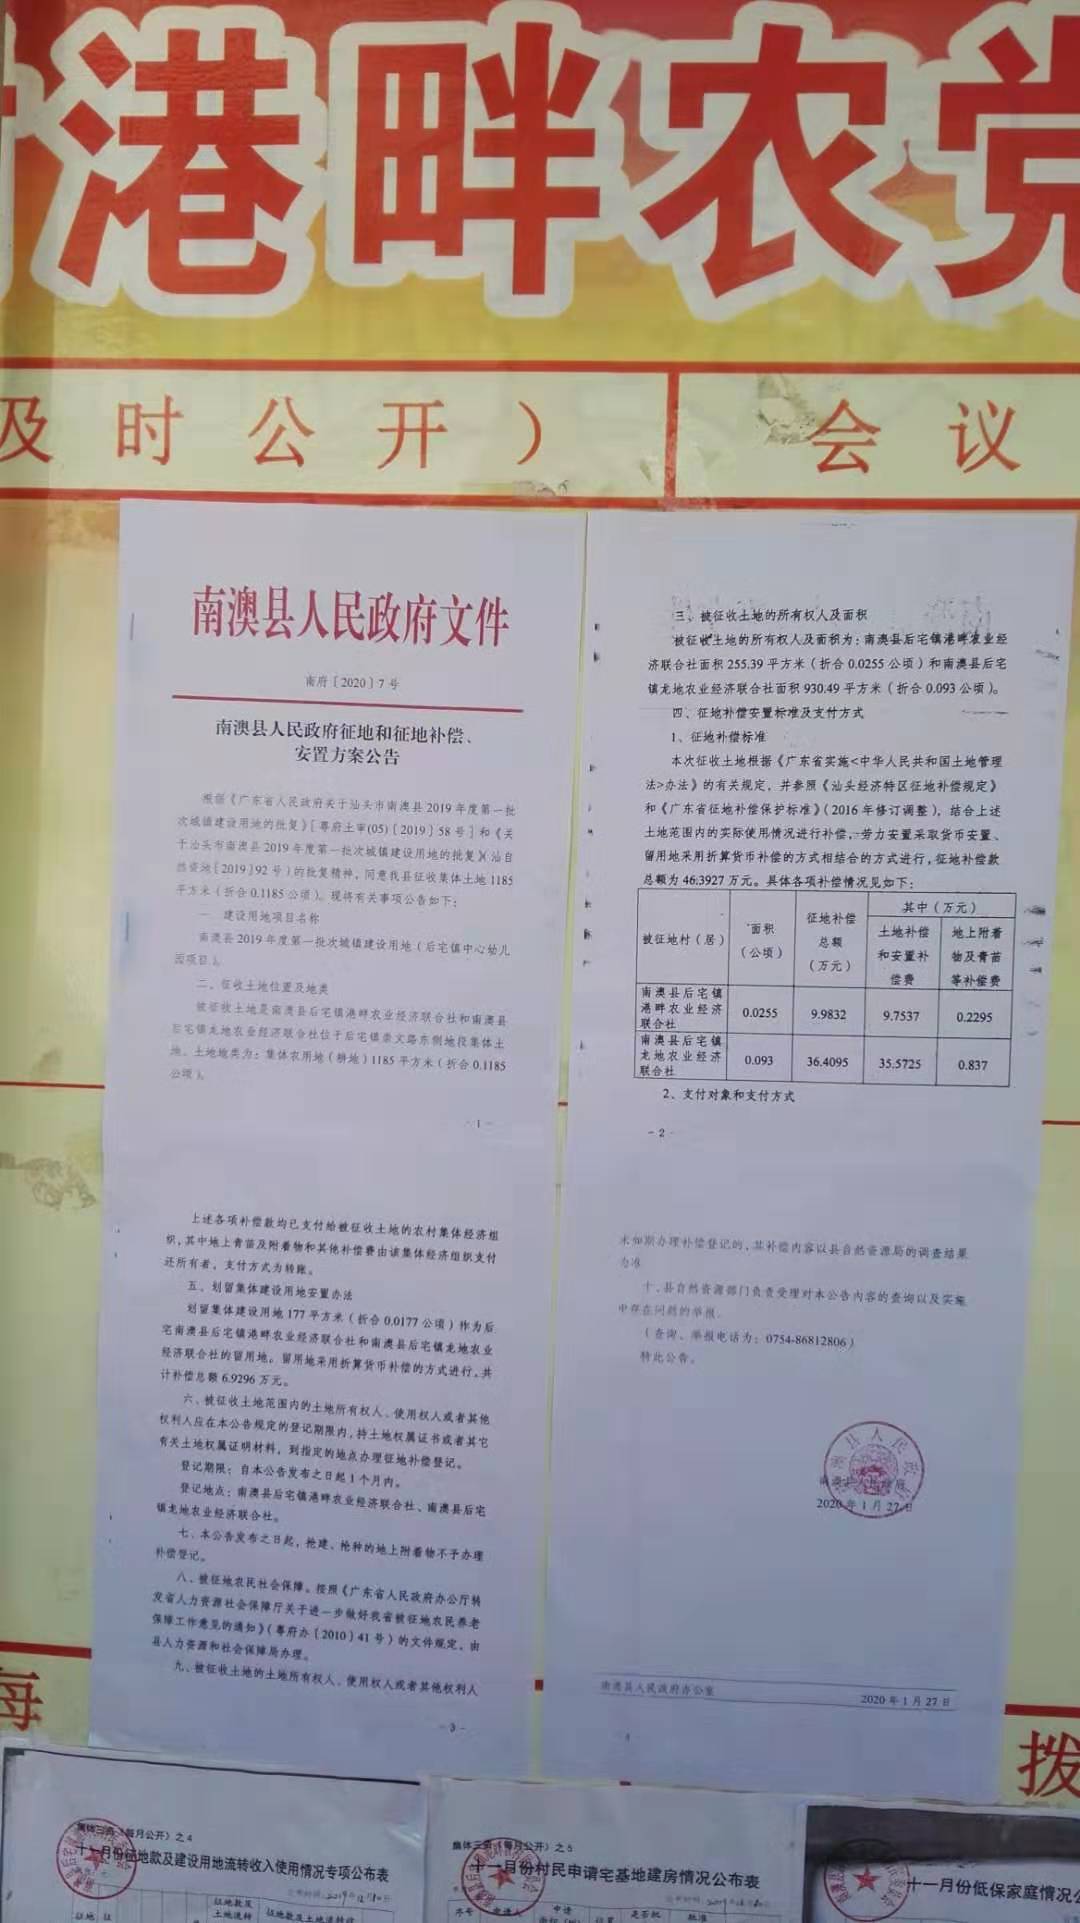 港畔农党
及时公开）
会议
南澳县人民政府文件
南府〔2020〕7号
南澳县人民政府征地和征地补偿、
安置方案公告
根据《广东省人民政府关于汕头市南澳县2019年度第一批
次城镇建设用地的批复》[粤府土审(05)〔2019〕58号]和《关
于汕头市南澳县2019年度第一批次城镇建设用地的批复》(汕自
然资地〔2019〕92号)的批复精神，同意我县征收集体土地1185
平方米（折合0.1185公顷）。现将有关事项公告如下：
一 建设用地项目名称
南澳县2019年度第一批次城镇建设用地（后宅镇中心幼儿
园项目）。
二、征收土地位置及地类
被征收土地是南澳县后宅镇港畔农业经济联合社和南澳县
后宅镇龙地农业经济联合社位于后宅镇崇文路东侧地段集体土
地。土地地类为：集体农用地（耕地）1185平方米（折合0.1185
公顷）。
- 1 -
三、被征收土地的所有权人及面积
被征收土地的所有权人及面积为：南澳县后宅镇港畔农业经
济联合社面积255.39平方米（折合0.0255公顷）和南澳县后宅
镇龙地农业经济联合社面积930.49平方米（折合0.093公顷）。
四、征地补偿安置标准及支付方式
1、征地补偿标准
本次征收土地根据《广东省实施<中华人民共和国土地管理
法>办法》的有关规定，并参照《汕头经济特区征地补偿规定》
和《广东省征地补偿保护标准》（2016年修订调整），结合上述
土地范围内的实际使用情况进行补偿，劳力安置采取货币安置、
留用地采用折算货币补偿的方式相结合的方式进行，征地补偿款
总额为46.3927万元。具体各项补偿情况见如下：
被征地村（居） 面积（公顷） 征地补偿总额（万元） 其中（万元）
土地补偿和安置补偿费 地上附着物及青苗等补偿费
南澳县后宅镇港畔农业经济联合社 0.0255 9.9832 9.7537 0.2295
南澳县后宅镇龙地农业经济联合社 0.093 36.4095 35.5725 0.837
2、支付对象和支付方式
- 2 -
上述各项补偿款均已支付给被征收土地的农村集体经济组
织，其中地上青苗及附着物和其他补偿费由该集体经济组织支付
还所有者，支付方式为转账。
五、划留集体建设用地安置办法
划留集体建设用地177平方米（折合0.0177公顷）作为后
宅南澳县后宅镇港畔农业经济联合社和南澳县后宅镇龙地农业
经济联合社的留用地。留用地采用折算货币补偿的方式进行，共
计补偿总额6.9296万元。
六、被征收土地范围内的土地所有权人、使用权人或者其他
权利人应在本公告规定的登记期限内，持土地权属证书或者其它
有关土地权属证明材料，到指定的地点办理征地补偿登记。
登记期限：自本公告发布之日起1个月内。
登记地点：南澳县后宅镇港畔农业经济联合社、南澳县后宅
镇龙地农业经济联合社。
七、本公告发布之日起，抢建、抢种的地上附着物不予办理
补偿登记。
八、被征地农民社会保障。按照《广东省人民政府办公厅转
发省人力资源社会保障厅关于进一步做好我省被征地农民养老
保障工作意见的通知》（粤府办〔2010〕41号）的文件规定，由
县人力资源和社会保障局办理。
九、被征收土地的土地所有权人、使用权人或者其他权利人
- 3 -
未如期办理补偿登记的，其补偿内容以县自然资源局的调查结果
为准
十、县自然资源部门负责受理对本公告内容的查询以及实施
中存在问题的举报。
（查询、举报电话为：0754-86812806）
特此公告。
南澳县人民政府
2020年1月27日
南澳县人民政府办公室
2020年1月27日
海
拨
集体三资（每月公开）之4
十一月份征地款及建设用地流转收入使用情况专项公布表
集体三资（每月公开）之5
十一月份村民申请宅基地建房情况公布表
十一月份低保家庭情况公